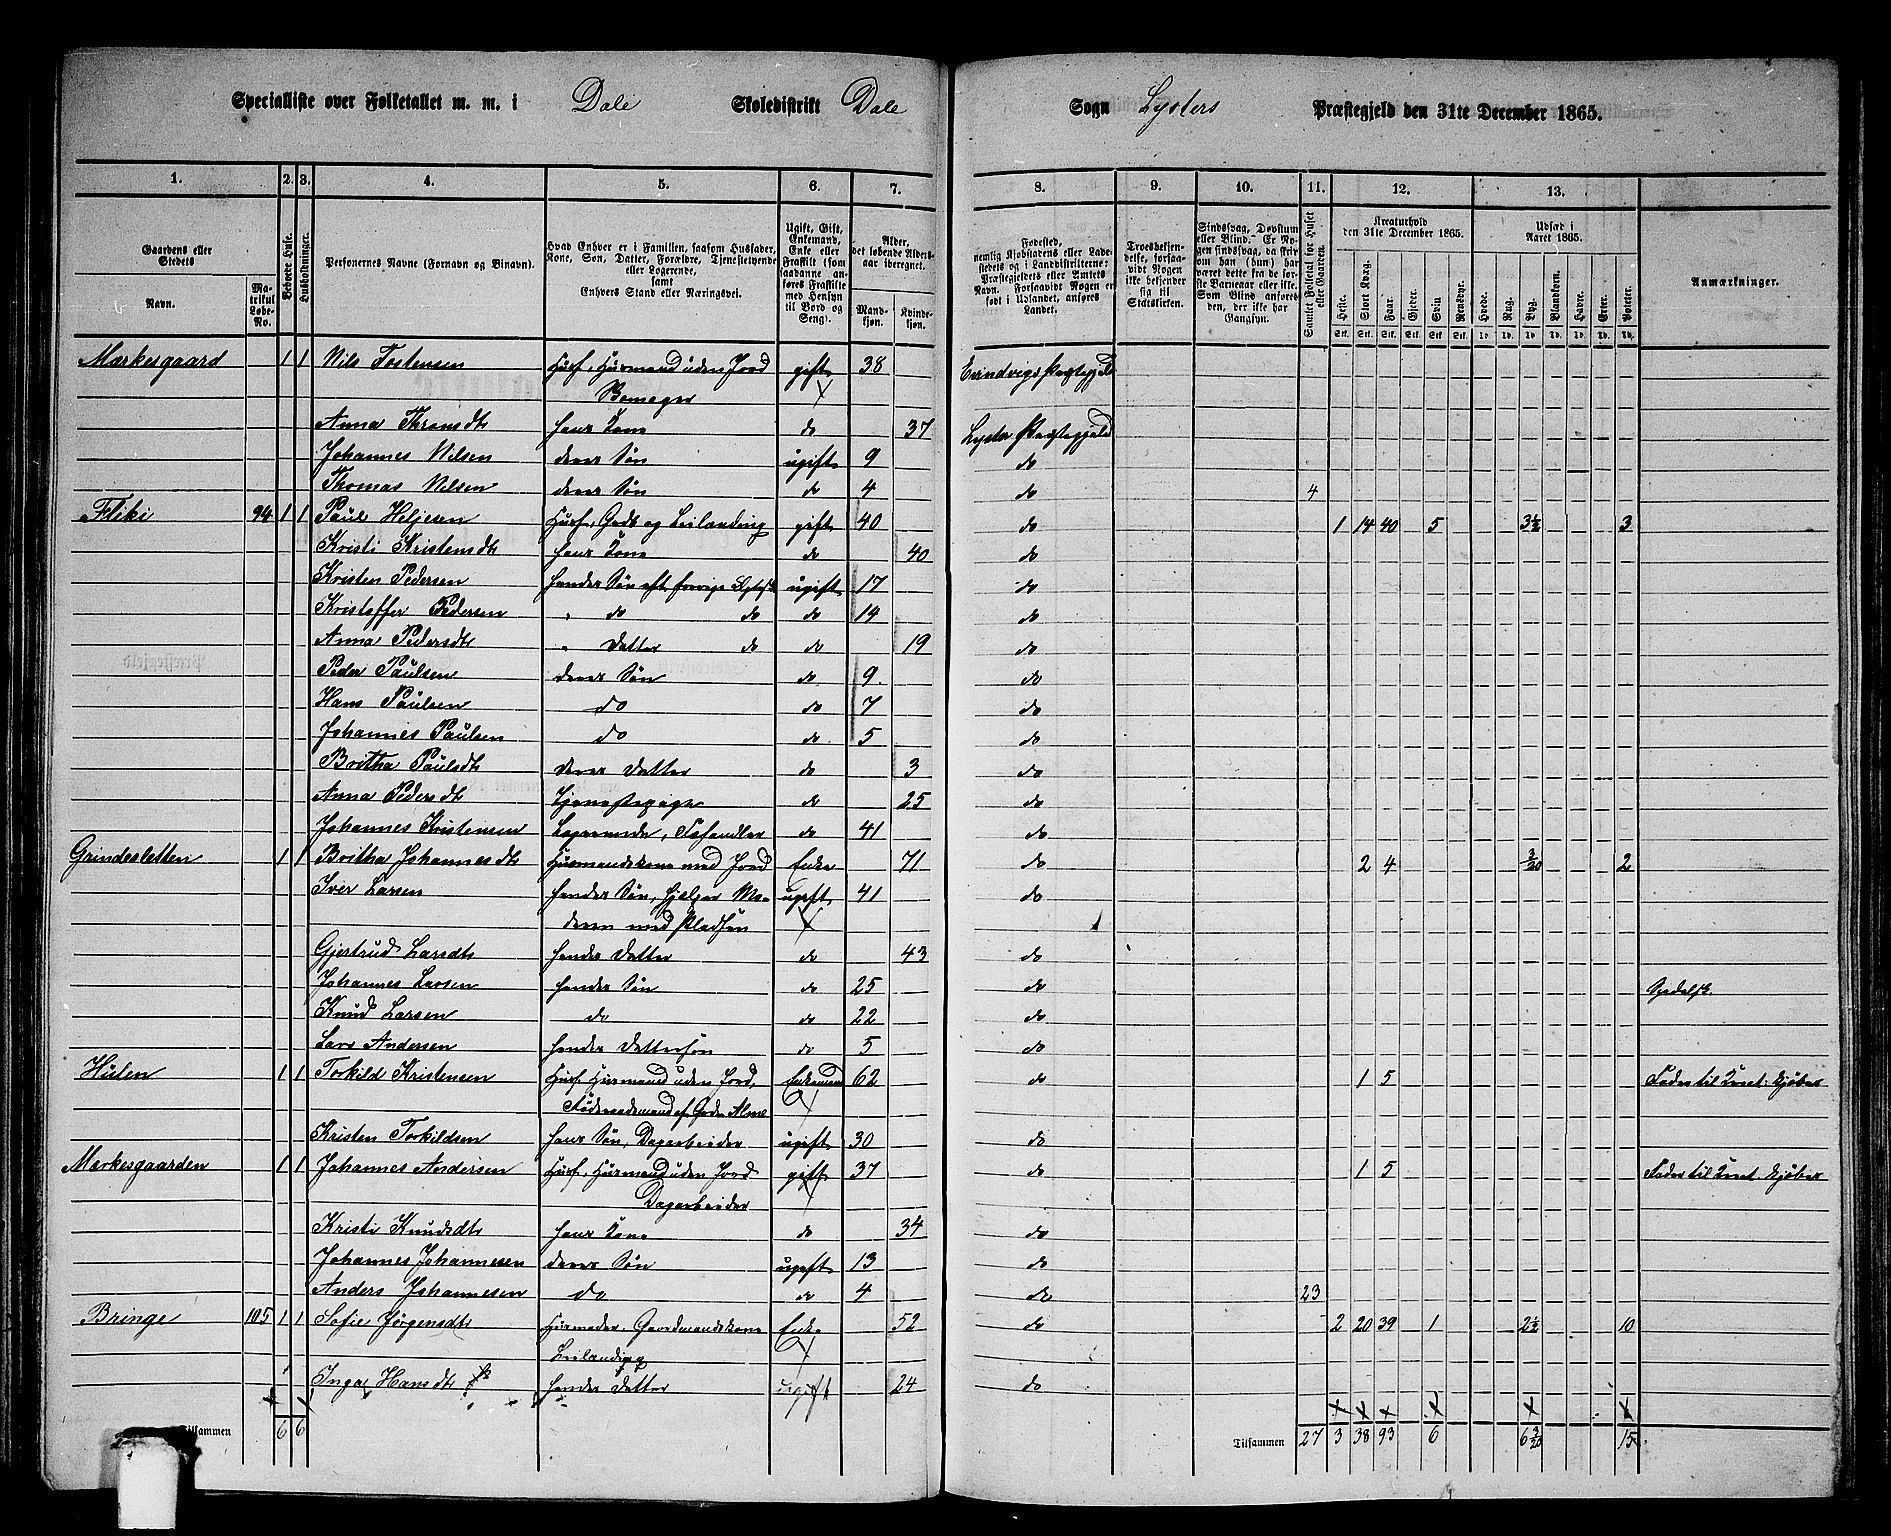 Specialliste over Folketallet m. m. i Dale Skoledistrikt Dale Sogn Lysters Præstegjeld den 31te December 1865.
1. 2. 3. 4. 5. 6. 7. 8. 9. 10. 11. 12. 13.
Gaardens eller Stedets
Navn.
Matrikul Løbe-No.
Beboede Huse.
Husholdninger.
Personernes Navne (Fornavn og Binavn).
Hvad Enhver er i Familien, saasom Husfader, Kone, Søn, Datter, Forældre, Tjenestetyende eller Logerende, samt Enhvers Stand eller Næringsvei.
Ugift, Gift, Enkemand, Enke eller Fraskilt (som saadanne anføres Fraskilte med Hensyn til Bord og Seng).
Alder, det løbende Aldersaar iberegnet.
Mandkjøn. Kvindekjøn.
Fødested, nemlig Kjøbstadens eller Ladestedets og i Landdistrikterne: Præstegjeldets eller Amtets Navn. Forsaavidt Nogen er født i Udlandet, anføres Landet.
Troesbekjendelse, forsaavidt Nogen ikke bekjender sig til Statskirken.
Sindssvag, Døvstum eller Blind. Er Nogen sindssvag, da skrives om han (hun) har været dette fra de første Barneaar eller ikke. Som Blind anføres den, der ikke har Gangsyn.
Samlet Folketal for Huset eller Gaarden.
Kreaturhold den 31te December 1865.
Heste. Stort Kvæg. Faar. Gjeder. Sviin. Rensdyr.
Udsæd i Aaret 1865.
Hvede. Rug. Byg. Blandkorn. Havre. Erter. Poteter.
Anmærkninger.
Markesgaard 1 1 Nils Tostensen Husf. Husmand uden Jord gift 38 Evindvigs Præstegjeld
Anna Thronsdtr hans Kone do 37 Lyster Præstegjeld
Johannes Nilsen deres Søn ugift 9 do
Thomas Nilsen deres Søn do 4 do 4
Fliki 94 1 1 Paul Heljesen Husf., Gdb og Leilænding gift 40 do 1 14 40 5 3½ 3
Kristi Kristensdtr hans Kone do 40 do
Kristen Pedersen hendes Søn af forrige Ægtesk ugift 17 do
Kristoffer Pedersen " do do do 14 do
Anna Pedersdtr " Datter do do 19 do
Peder Paulsen deres Søn do 9 do
Hans Paulsen do do 7 do
Johannes Paulsen do do 5 do
Britha Paulsdtr deres Datter do 3 do
Anna Pedersdtr Tjenestepige do 25 do
Johannes Kristensen Logerende, Fæhandler do 41 do
Grindesletten 1 1 Britha Johannesdtr Husmandskone med Jord Enke 71 do 2 4 3/20 2
Iver Larsen hendes Søn, hjelper Mo- ugift 41 do
deren med Pladsen
Gjertrud Larsdtr hendes Datter do 43 do
Johannes Larsen hendes Søn do 25 do Spedalsk.
Knud Larsen do do 22 do
Lars Andersen hendes Dattersøn do 5 do
Hulen 1 1 Torkild Kristensen Husf. Husmand uden Jord, Enkemand 62 do 1 5 Foder til Kreat. kjøbes
Føderaadsmand af Gdn Alme
Kristen Torkildsen hans Søn, Dagarbeider ugift 30 do
Markesgaarden 1 1 Johannes Andersen Husf. Husmand uden Jord gift 37 do 1 5 Foder til Kreat. kjøbes
Dagarbeider
Kristi Knudsdtr hans Kone do 34 do
Johannes Johannesen deres Søn ugift 13 do
Anders Johannesen do do 4 do 23
Bringe 105 1 1 Sofie Jørgensdtr Husmoder, Gaardmandskone Enke 52 do 2 20 39 1 2½ 10
Leilænding
Inga Hansdtr hendes Datter ugift 24 do
Tilsammen 6 6
Tilsammen 27 3 38 93 6 6 3/20 15